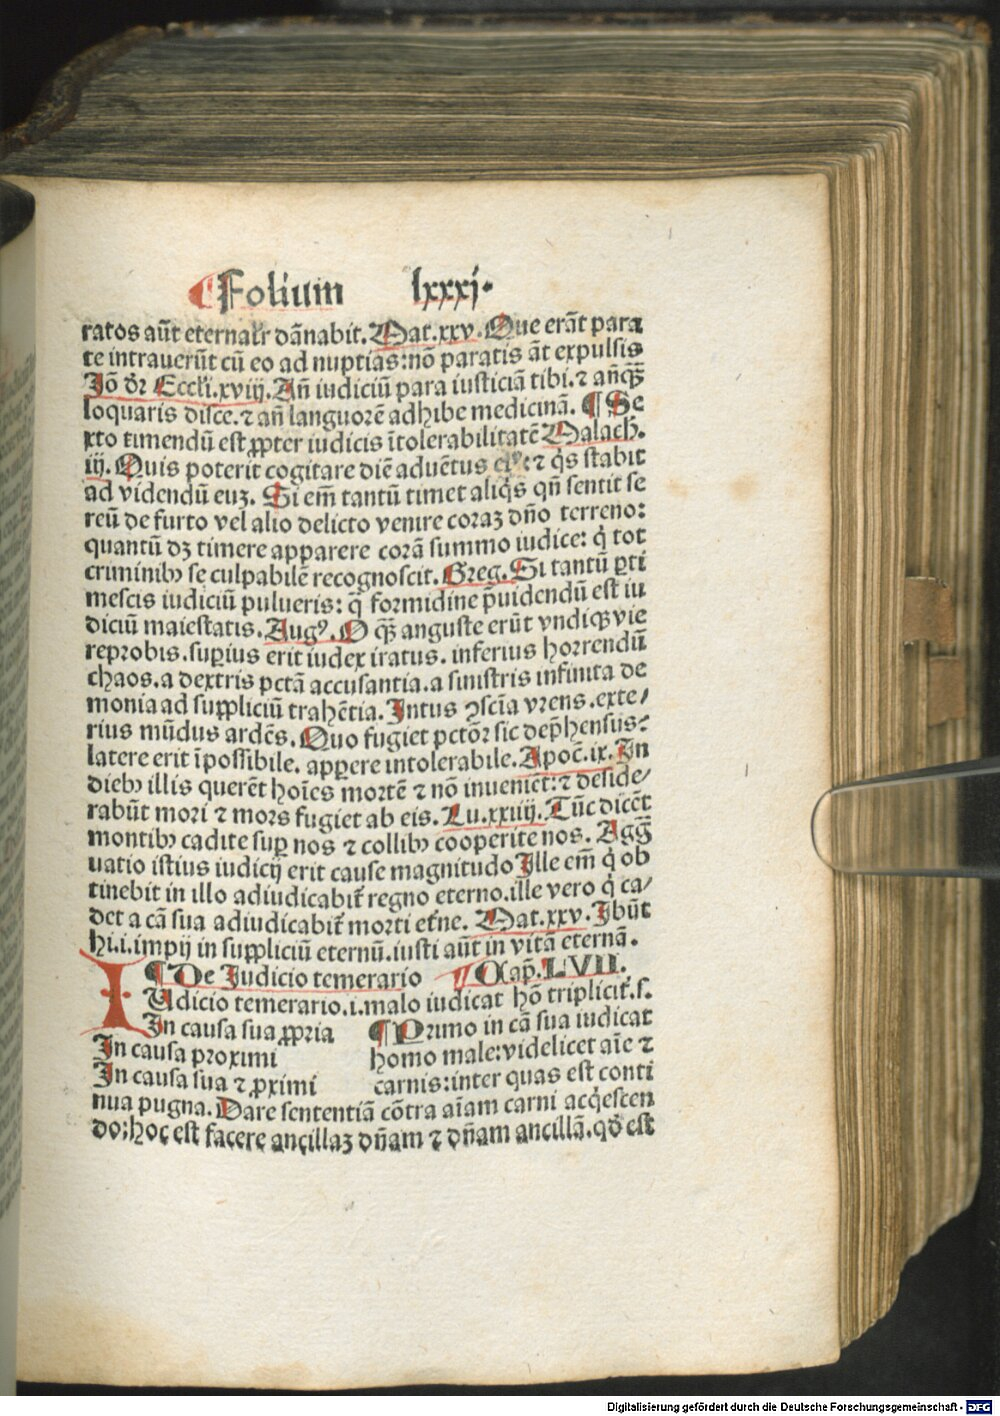 ¶Folium lxxxj.
ratos aūt eternalr dānabit. Mat.xxv. Que erāt para
te intrauerūt cū eo ad nuptias: nō paratis āt expulsis
Jō dr Eccli.xviij. Añ iudiciū para iusticiā tibi. ⁊ anq̃ꝫ
loquaris disce. ⁊ añ languorē adhibe medicinā. ¶ Se
xto timendū est ꝓpter iudicis ītolerabilitatē Malach.
iij. Quis poterit cogitare diē aduētus ei⁹: ⁊ q̇s stabit
ad videndū euꝫ. Si em̄ tantū timet aliq̇s qn̄ sentit se
reū de furto vel alio delicto venire coraꝫ dño terreno:
quantū dꝫ timere apparere corā summo iudice: q̇ tot
criminibꝰ se culpabilē recognoscit. Greg. Si tantū ꝑti
mescis iudiciū pulueris: q̃ formidine p̄uidendū est iu
diciū maiestatis. Aug⁹. O q̃ꝫ anguste erūt vndiqꝫ vie
reprobis. suꝑius erit iudex iratus. inferius horrendū
chaos. a dextris pctā accusantia. a sinistris infinita de
monia ad suppliciū trahētia. Intus ꝯscīa vrens. exte/
rius mūdus ardēs. Quo fugiet pctōr sic dep̄hensus:
latere erit īpossibile. apꝑere intolerabile. Apoc̄.ix. In
diebꝰ illis querēt hoīes mortē ⁊ nō inueniēt: ⁊ deside/
rabūt mori ⁊ mors fugiet ab eis. Lu.xxiij. Tūc dicēt
montibꝰ cadite suꝑ nos ⁊ collibꝰ cooperite nos. Agg̃
uatio istius iudicij erit cause magnitudo Ille em̄ q̇ ob
tinebit in illo adiudicabit᷑ regno eterno. ille vero q̇ ca/
det a cā sua adiudicabit᷑ morti et̄ne. Mat.xxv. Ibūt
hi.i.impij in suppliciū eternū. iusti aūt in vitā eternā.
¶De Iudicio temerario ¶Cap̄.LVII.
IUdicio temerario.i.malo iudicat hō triplicit᷑.s.
In causa sua ꝓpria ¶Primo in cā sua iudicat
In causa proximi homo male: videlicet aīe ⁊
In causa sua ⁊ ꝓximi carnis: inter quas est conti
nua pugna. Dare sententiā cōtra aīam carni acq̇escen
do; hoc est facere ancillaꝫ dñam ⁊ dñam ancillā. qd̓ est
Digitalisierung gefördert durch die Deutsche Forschungsgemeinschaft - DFG